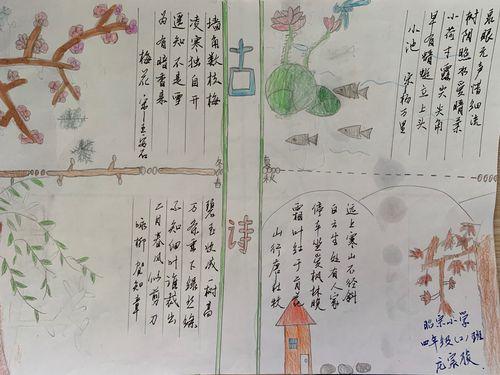 墙角数枝梅
凌寒独自开
遥知不是雪
为有暗香来
梅花 宋 王安石
泉眼无声惜细流
树阴照水爱晴柔
小荷才露尖尖角
早有蜻蜓立上头
小池 宋 杨万里
古诗
冬
春
夏
秋
碧玉妆成一树高
万条垂下绿丝绦
不知细叶谁裁出
二月春风似剪刀
咏柳 贺知章
远上寒山石径斜
白云生处有人家
停车坐爱枫林晚
霜叶红于二月花
山行 唐 杜牧
小学
四年级(2)班